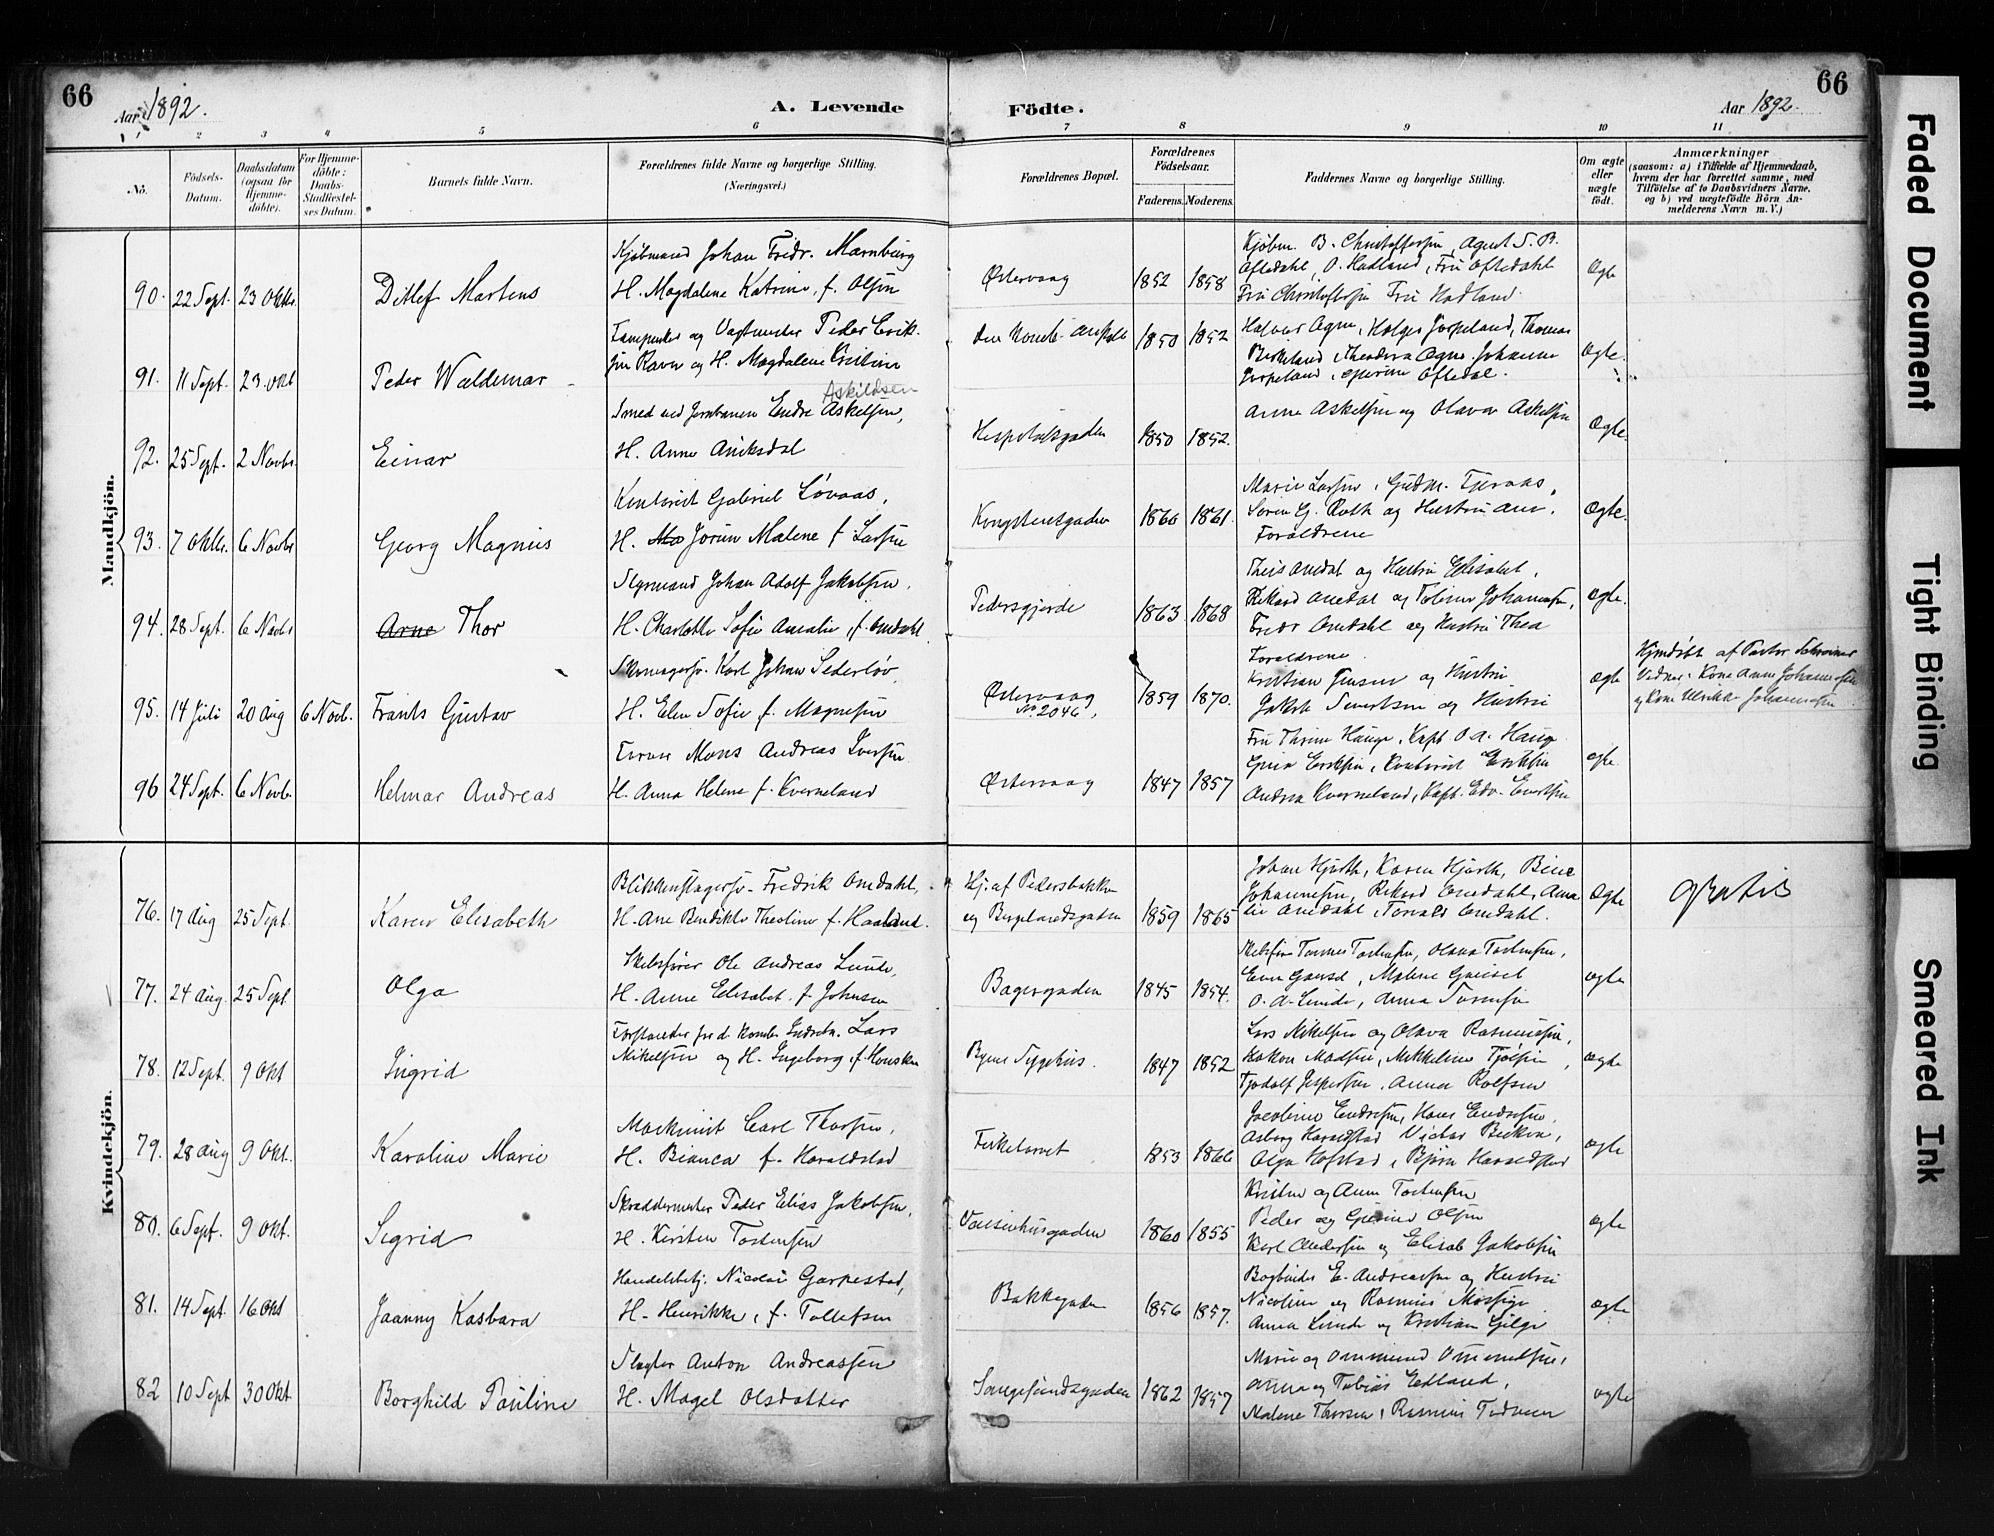 66
Aar 1892.
A. Levende
Födte.
Aar 1892.
66
1 2 3 4 5 6 7 8 9 10 11
No.
Födsels-
Datum.
Daabsdatum
(ogsaa for
Hjemme-
döbte).
For Hjemme-
döbte:
Daabs-
Stadfæstel-
ses Datum.
Barnets fulde Navn.
Forældrenes fulde Navne og borgerlige Stilling.
(Næringsvei.)
Forældrenes Bopæl.
Forældrenes
Födselsaar.
Faderens. Moderens.
Faddernes Navne og borgerlige Stilling.
Om ægte
eller
uægte
födt.
Anmærkninger
(saasom: a) i Tilfælde af Hjemmedaab,
hvem der har forrettet samme, med
Tilföielse af to Daabsvidners Navne,
og b) ved uægtefödte Börn An-
melderens Navn m. V.)
Mandkjön.
90. 22 Sept. 23 Oktbr.
Ditlef Martens
Kjøbmand Johan Fredr. Marnburg
H. Magdalene Katrine, f. Olsen
Østervaag
1852 1858
Kjøbm. B. Christoffersen, Agent S. B.
Oftedahl, O. Hadland, Fru Oftedahl
Fru Christoffersen Fru Hadland.
Ægte
91. 11 Sept. 23. okt
Peder Waldemar
og Vagtmester Peder Erik-
sen Ravn og H. Magdalene Kristine
1850 1852
Halvor Ogne, Holger Jørpeland, Thomas
Birkeland, Theodora Ogne, Johanne
Jørpeland, Oftedal.
Ægte.
92. 25 Sept. 2 Novbr.
Einar
Askildsen
Smed ved Jernbanen Endre Askelsen,
H. Anne Aniksdal
Hospitalsgaden
1850 1852.
Anne Askelsen og Olava Askelsen
Ægte.
93. 7 Oktbr. 6 Novbr
Georg Magnus
Kontorist Gabriel Løvaas,
H. Ma Jorun Malene f. Larsen
Kongstensgaden
1860 1861.
Marie Larsen, Gudm. Tjeraas,
Søren G. Roth og Hustru Ane,
Forældrene
Ægte.
94. 28 Sept. 6 Novbr
Arne Thor
Styrmand Johan Adolf Jakobsen,
H. Charlotte Sofie Amalie, f. Omdahl
Pedersgjerde
1863 1868
Theis Omdal og Hustru Elisabet,
Rikard Omdal og Toline Johannesen,
Fredr Omdahl og Hustru Thea
Forældrene
Ægte.
95. 14 Juli 20 Aug 6 Novb.
Frants Gustav
Skomagersv. Karl Johan Sederløv
H. Elen Sofie f. Magnesen
Østervaag
No. 2046.
1859 1870.
Kristian Jensen og Hustru
Jakob Sivertsen og Hustru
ægte
Hjmdøbt af Pastor Schreiner
Vidner: Kone Anne Johannesen
og Kone Ulrikke Johannesen
96 24 Sept. 6 Novbr.
Helmar Andreas
Mons Andreas Iversen
H. Anna Helene f. Kverneland
Østervaag
1847 1857
Fru Thrine Hauge, Kapt. O. A. Haug
Eriksen, Kontorist Eriksen
Andrea Kverneland, Kapt. Edv. Evertsen
ægte
Kvindekjön.
76. 17 Aug 25 Sept.
Karen Elisabeth
Blikkenslagersv. Fredrik Omdahl,
H. Ane Bendikte Theoline f. Haaland.
Hj. af Pedersbakken
og Bergelandsgaden
1859 1865
Johan Hjorth, Karen Hjorth, Bine
Johannesen, Rikard Omdahl, Ama-
lie Omdahl, Tomas Omdahl.
Ægte
gratis
77. 24 Aug. 25 Sept
Olga
Skibsfører Ole Andreas Lunde,
H. Anne Elisabet f. Johnsen
Bagergaden
1845 1854.
Skibsfører Tønnes Torstensen, Olava Torstensen,
Malene Gausel
O. A. Lunde, Anna
ægte
78. 12 Sept. 9 Okt
Ingrid
Forstander ved d. komb. Indretn. Lars
Mikelsen og H. Ingeborg, f. Housken
Byens Sygehus.
1847 1852
Lars Mikelsen og Olava Rasmussen,
Hakon Madsen, Mikkeline
Tjodolf Jespersen, Anna Rolfsen
ægte
79. 28 Aug 9 Okt.
Karoline Marie
Maskinist Carl Thorsen,
H. Bianca f. Haraldstad
Fisketorvet
1853 1866
Jacobine Endresen, Hans Endresen,
Asborg Haraldstad Victor
Olga Hofstad, Bjørn Haraldstad
ægte
80. 6 Sept. 9 Okt.
Sigrid
Skræddermester Peder Elias Jakobsen,
H. Kirsten Tostensen
Vaisenhusgaden
1860 1855
Kristen og Anne Tostensen
Peder og Olsen
Karl Andersen og Elisab Jakobsen
ægte
81. 14 Sept. 16 Okt
Jaanny Kasbara
Handelsbetj. Nicolai Garpestad,
H. Henrikke, f. Tollefsen
Bakkegaden
1856 1857.
Bogbinder E. Andreassen og Hustru
Nicoline og Rasmus Mossige
Anna Lunde og Kristian Gilje
ægte
82 10 Sept 30 Okt
Borghild Pauline
Slagter Anton Andreassen
H. Magel Olsdatter
Langesundsgaden
1862 1857
Marie og Ommund Ommundsen,
Anna og Tobias Edland,
Malene Thorsen, Rasmus
ægte
Faded Document
Tight Binding
Smeared Ink